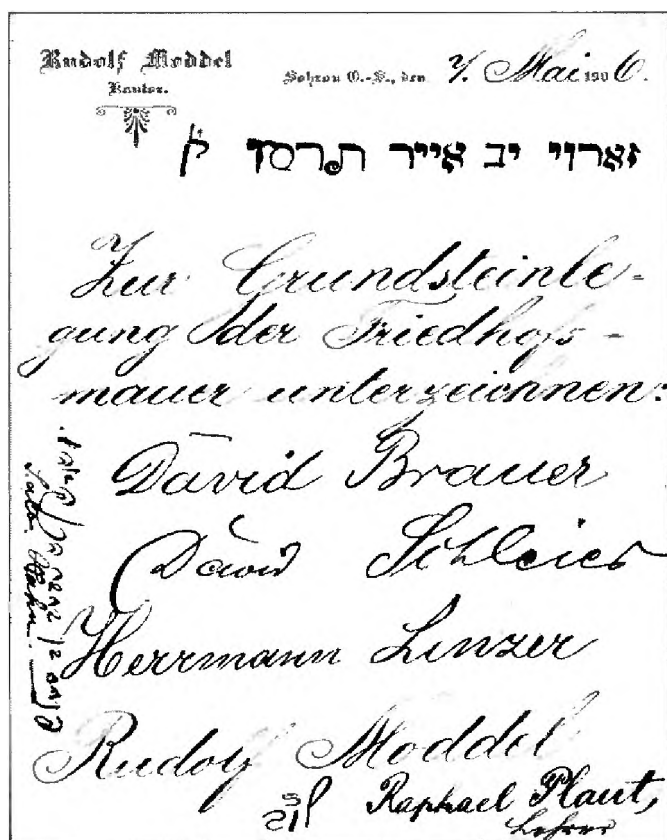 Rudolf Moddel
Kantor.
Sohrau O.-S., den 7. Mai 1906.
זארוי יב אייר תרסו
Zur Grundsteinle-
gung der Friedhofs-
mauer unterzeichnen:
David Brauer
David Schleier
Herrmann Linzer
Rudolf Moddel
Raphael Plaut,
Lehrer